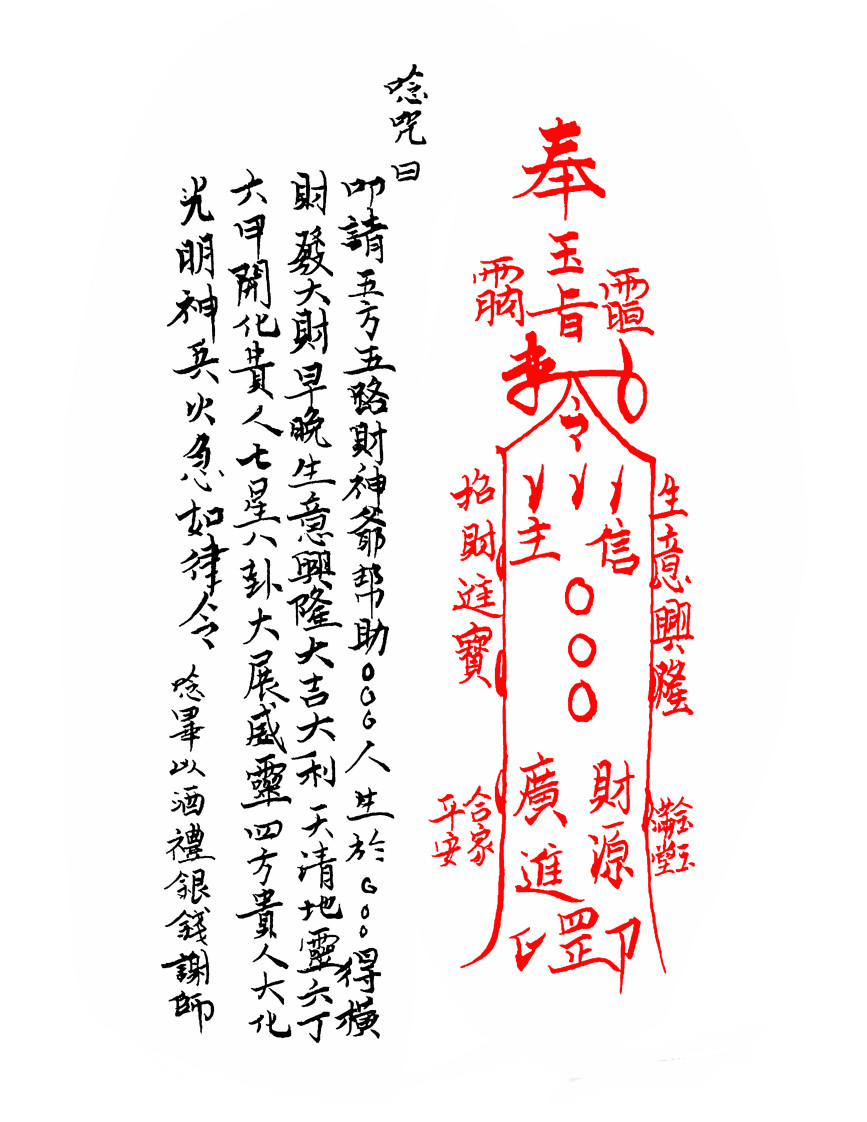 奉
玉旨
令
信
主
○○○
財源
廣進
罡
印
生意興隆
招財進寶
金玉滿堂
合家平安
唸咒曰
叩請五方五路財神爺幫助○○○人生於○○○得橫
財發大財早晚生意興隆大吉大利天清地靈六丁
六甲開化貴人七星八卦大展威靈四方貴人大化
光明神兵火急如律令
唸畢以酒禮銀錢謝師